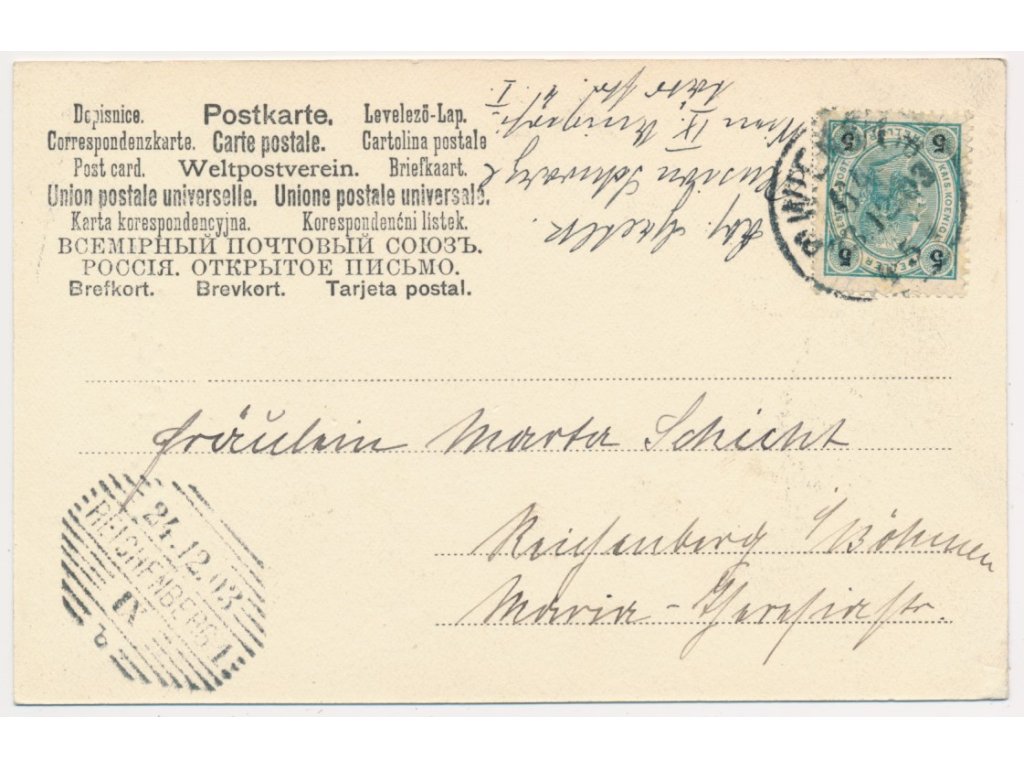 Dopisnice. Postkarte. Levelező-Lap.
Correspondenzkarte. Carte postale. Cartolina postale
Post card. Weltpostverein. Briefkaart.
Union postale universelle. Unione postale universale.
Karta korespondencyjna. Korespondenční lístek.
ВСЕМІРНЫЙ ПОЧТОВЫЙ СОЮЗЪ.
РОССІЯ. ОТКРЫТОЕ ПИСЬМО.
Brefkort. Brevkort. Tarjeta postal.
Wien IX.
WIEN
5 5
5 5
Fräulein Marta Schicht
Reichenberg i/Böhmen
Maria-Theresiastr.
24.12.03
REICHENBERG 1.
IX